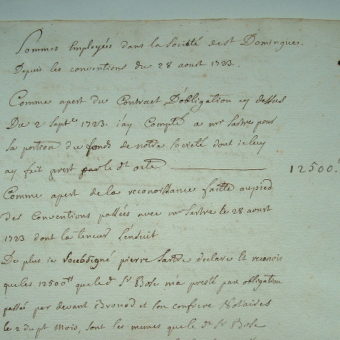 Sommes Employées dans la Société de St Domingue
Depuis les conventions du 28 aoust 1723.
Comme apert du Contract D'obligation cy dessus
Du 2 Septre 1723. j'ay Compté a mr Sartre pour
sa portion du fonds de notre Société dont iceluy
ay fait prest par le dt acte 12500
Comme apert de la reconoissance faitte au pied
des Conventions passées avec mr Sartre le 28 aoust
1723 dont la teneur s'ensuit
De plus je soubsigné pierre Sartre declare et reconois
que les 12500tt que le dt Sr Bose ma presté par obligation
passée par devant Bronod et son confrere Notaires
le 2 du pt Mois, sont les memes que le dt Sr Bose